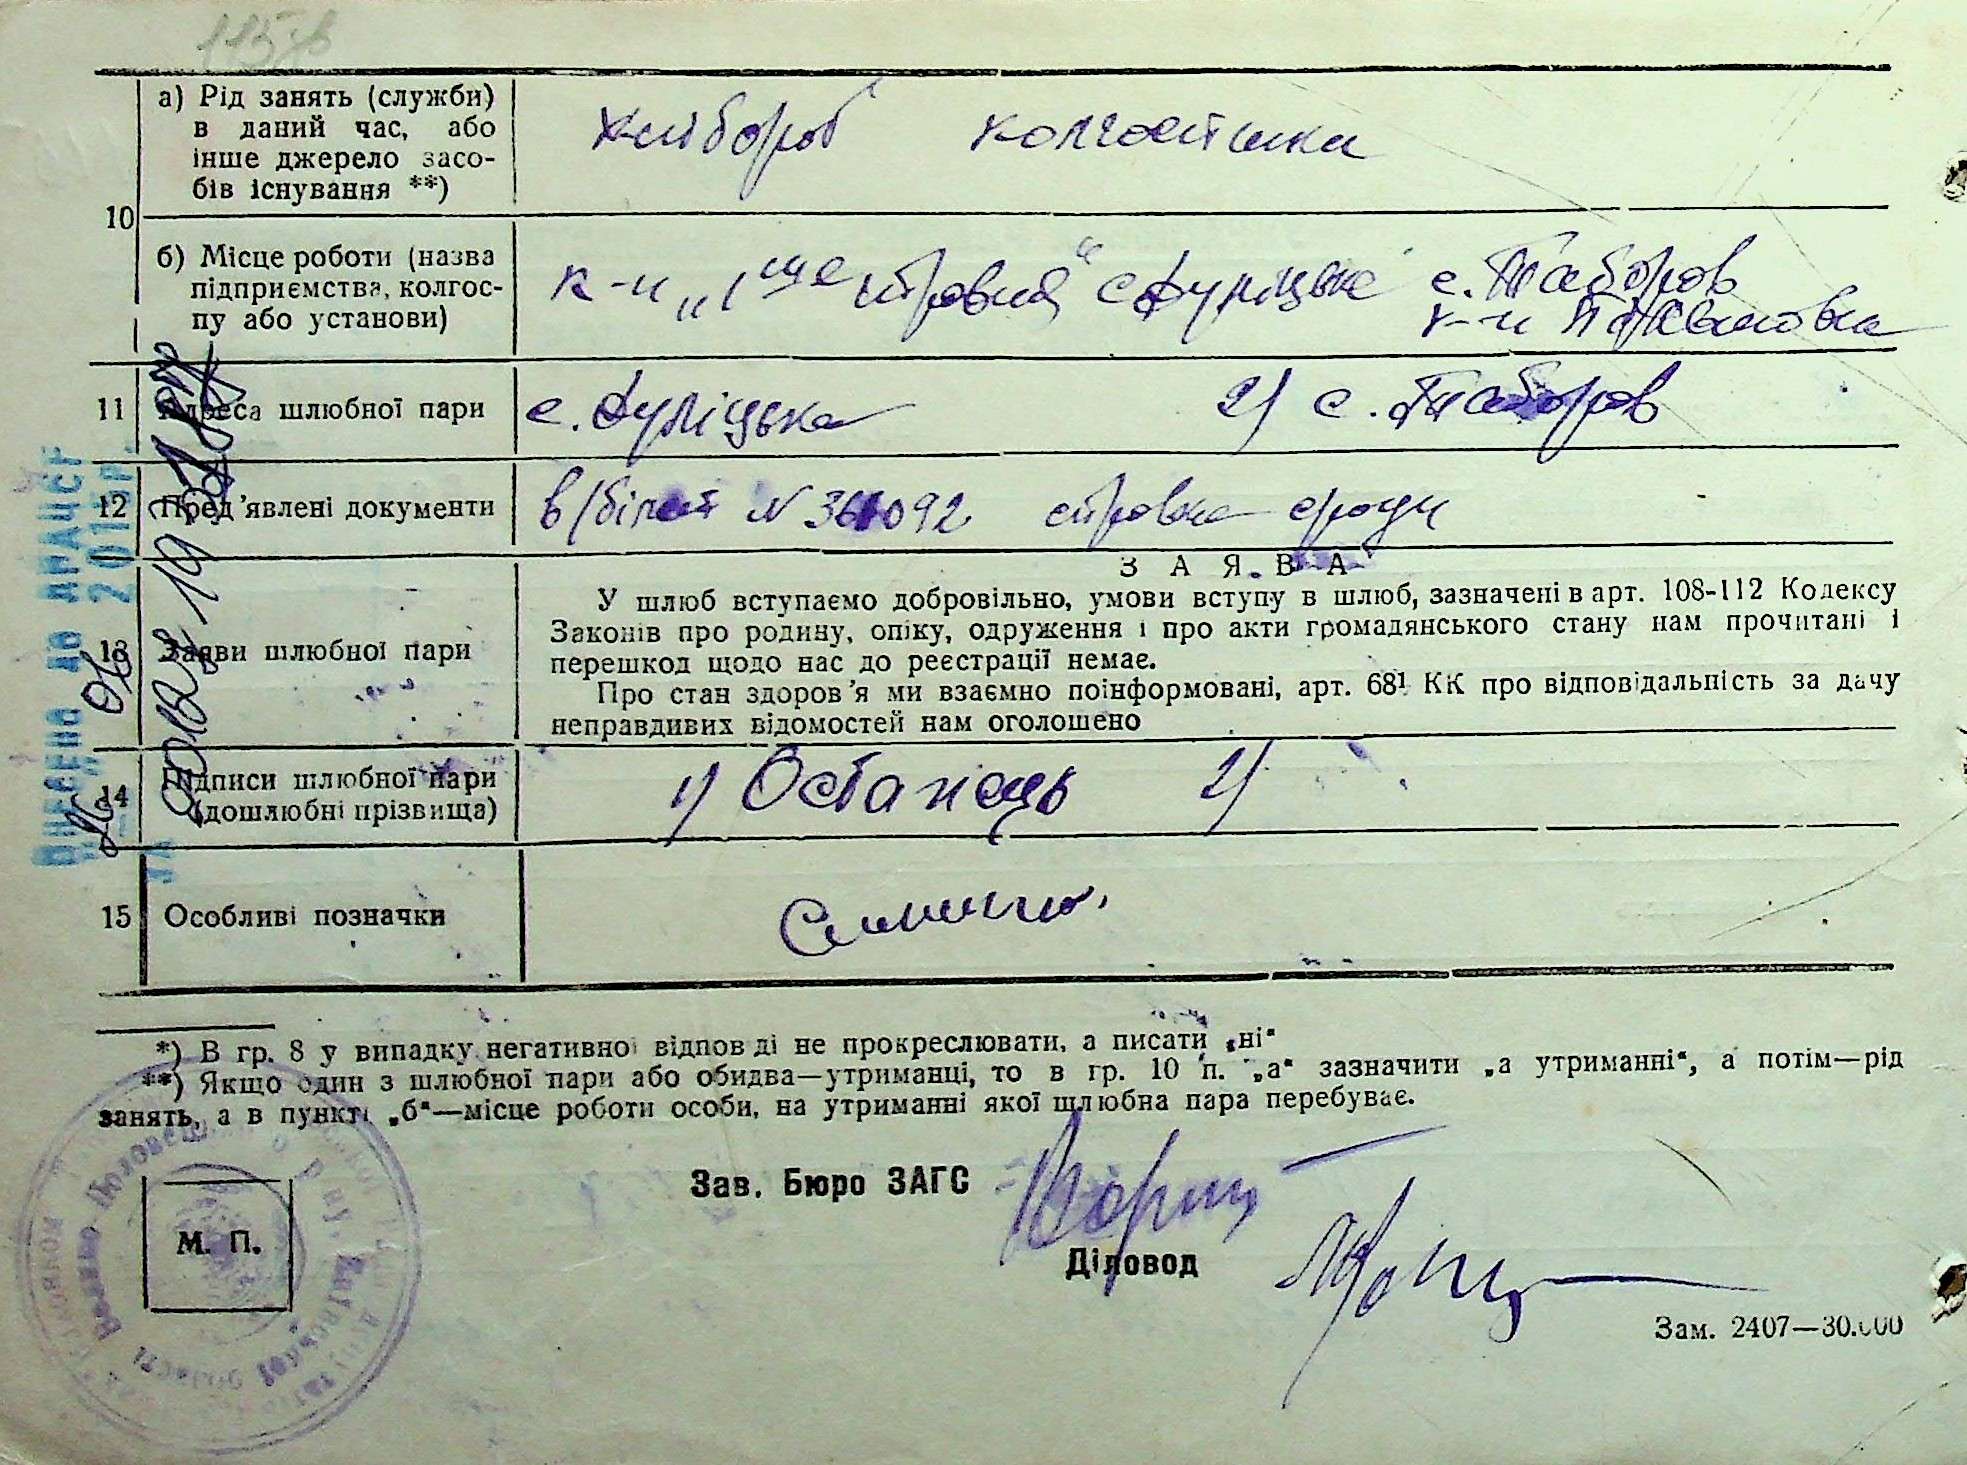 а) Рід занять (служби)
в даний час, або
інше джерело засо-
бів існування **)
хлібороб колгоспниця
10
б) Місце роботи (назва
підприємства, колгос-
пу або установи)
к-п с. Дуліцьке с. Таборов
к-п
11 Адреса шлюбної пари
с. Дуліцька 2) с. Таборов
12 Пред'явлені документи
в/білет N 361092 справка сроди
13 Заяви шлюбної пари
ЗАЯВА
У шлюб вступаємо добровільно, умови вступу в шлюб, зазначені в арт. 108-112 Кодексу
Законів про родину, опіку, одруження і про акти громадянського стану нам прочитані і
перешкод щодо нас до реєстрації немає.
Про стан здоров'я ми взаємно поінформовані, арт. 68¹ КК про відповідальність за дачу
неправдивих відомостей нам оголошено
14 Підписи шлюбної пари
(дошлюбні прізвища)
1) Остапець 2)
15 Особливі позначки
*) В гр. 8 у випадку негативної відповіді не прокреслювати, а писати „ні“
**) Якщо один з шлюбної пари або обидва—утриманці, то в гр. 10 п. „а“ зазначити „а утриманні“, а потім—рід
занять, а в пункті „б“—місце роботи особи, на утриманні якої шлюбна пара перебуває.
Зав. Бюро ЗАГС
М. П.
Діловод
Зам. 2407—30.000
Внесено до ДРАЦСГ
201 р.